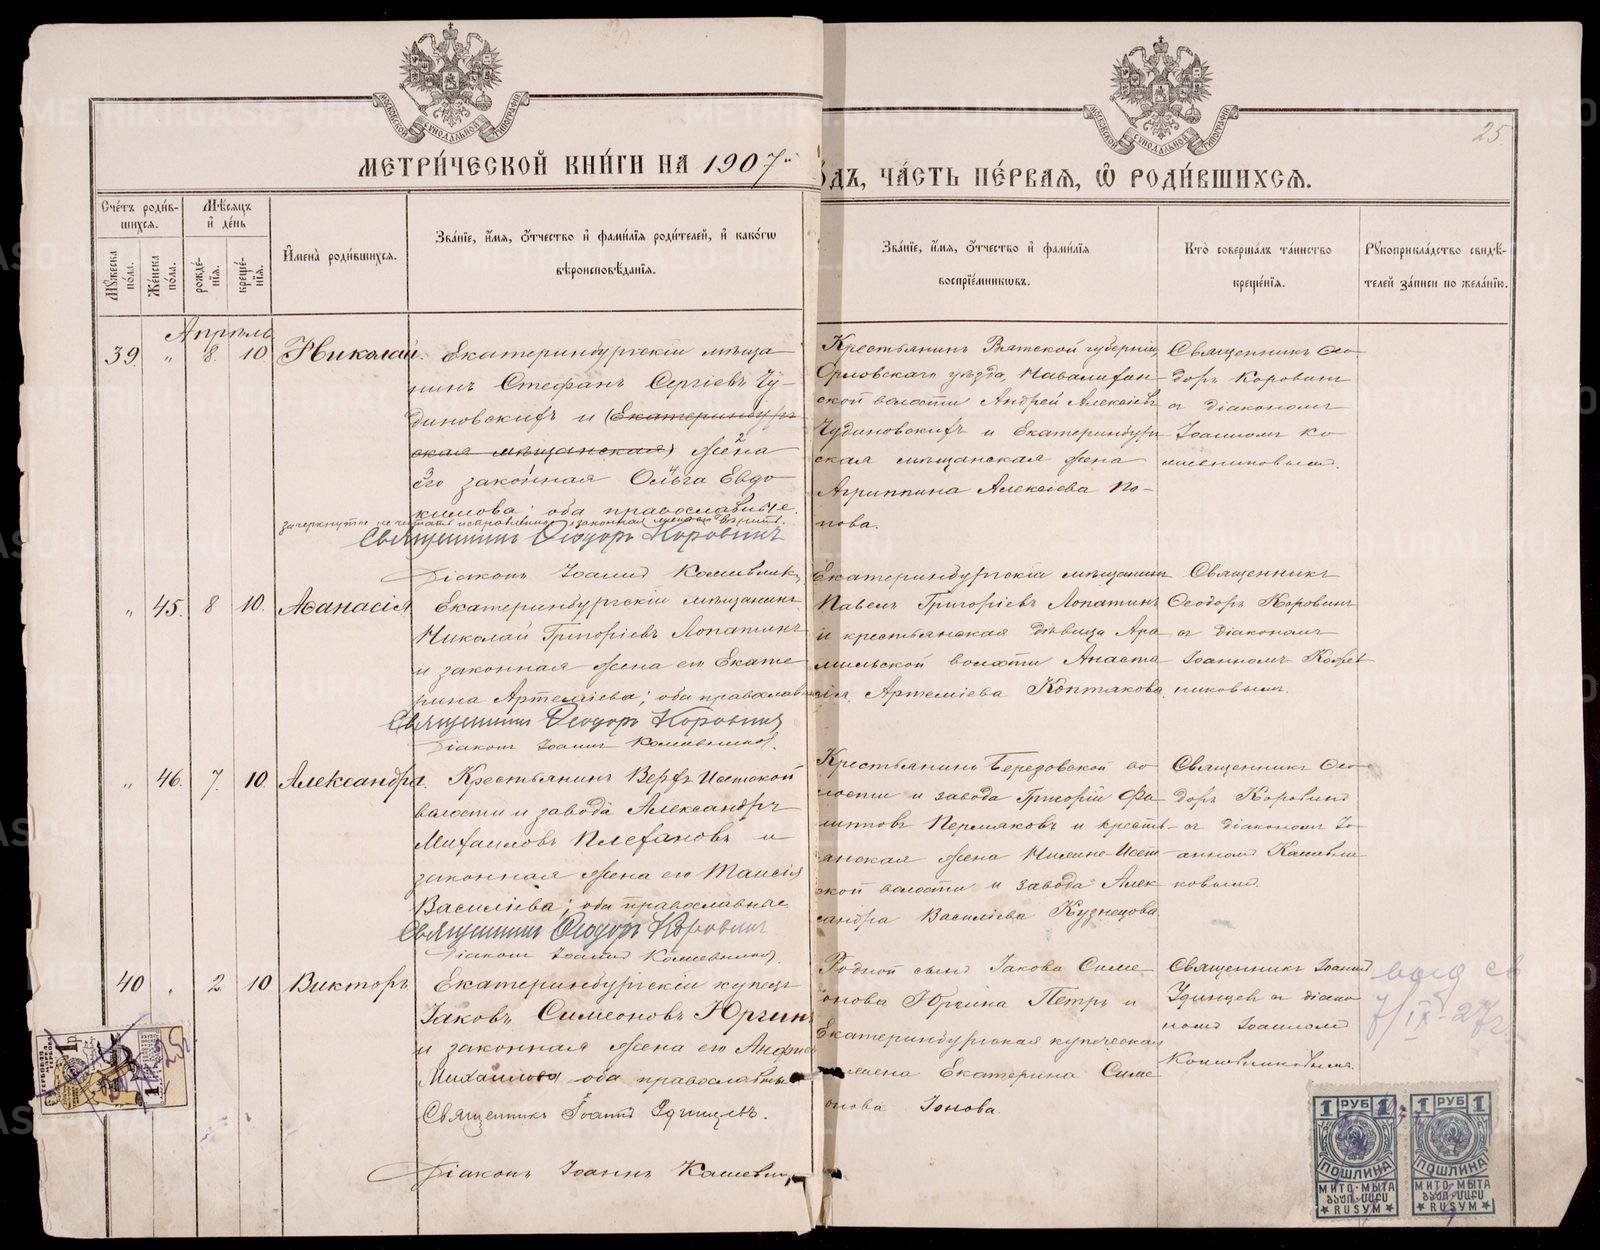 МЕТРИ́ЧЕСКОЙ КНИ́ГИ НА 1907
ОДЪ, ЧА́СТЬ ПЕ́РВАЯ, Ѡ РОДИ́ВШИХСЯ.
25
Сче́тъ роди́вшихся.
Мужеска пола.
Же́нска пола.
Мѣ́сяцъ и де́нь
рожде́нія.
креще́нія.
Имена̀ роди́вшихся.
Зва́нїе, и́мя, о́тчество и фами́лїя роди́телей, и како́гѡ
вѣроисповѣ́данїя.
Зва́нїе, и́мя, о́тчество и фами́лїя
воспрїе́мникѡвъ.
Кто̀ соверша́лъ та́инство
креще́нїя.
Рукоприкла́дство свидѣ́-
телей за́писи по жела́нїю.
Апрѣль
39. " 8. 10 Николай.
Екатеринбургскій мѣща-
нинъ Стефанъ Сергіевъ Чу-
диновскихъ и (Екатеринбург-
ская мѣщанская) жена
его законная Ольга Евдо-
кимова; оба православные.
Священникъ Ѳеодоръ Коровинъ
Діаконъ Іоаннъ
Крестьянинъ Вятской губерніи
Орловскаго уѣзда,
ской волости Андрей Алексіевъ
Чудиновскихъ и Екатеринбург-
ская мѣщанская жена
Агриппина Алексіева По-
пова.
Священникъ Ѳео-
доръ Коровинъ
съ діакономъ
Іоанномъ Ко-
" 45. 8 10. Аѳанасія
Екатеринбургскій мѣщанинъ
Николай Григоріевъ Лопатинъ
и законная жена его Екате-
рина Артеміева; оба православн
Священникъ Ѳеодоръ Коровинъ
Діаконъ Іоаннъ
Екатеринбургскій мѣщанинъ
Павелъ Григоріевъ Лопатинъ
и крестьянская дѣвица Ара-
мильской волости Анаста-
сія Артеміева Коптякова.
Священникъ
Ѳеодоръ Коровинъ
съ діакономъ
Іоанномъ
никовымъ.
" 46. 7. 10 Александра.
Крестьянинъ Верхъ-Исетской
волости и завода Александръ
Михаиловъ Плехановъ и
законная жена его Таисія
Василіева; оба православные
Священникъ Ѳеодоръ Коровинъ
Діаконъ Іоаннъ
Крестьянинъ Березовской во-
лости и завода Григорій Фи-
липповъ Пермяковъ и кресть-
янская жена Нижне-Исет-
ской волости и завода Алек-
сандра Василіева Кузнецова
Священникъ Ѳео-
доръ Коровинъ
съ діакономъ Іо-
анномъ
ковымъ.
40 " 2 10 Викторъ
Екатеринбургскій купецъ
Іаковъ Симеоновъ Юргинъ
и законная жена его Анфиса
Михаилова оба православные
Священникъ Іоаннъ Удинцевъ.
Діаконъ Іоаннъ
Родной сынъ Іакова Симе-
онова Юргина Петръ и
Екатеринбургская купеческая
жена Екатерина Симе-
онова Іонова.
Священникъ Іоаннъ
Удинцевъ съ діако-
номъ Іоанномъ
выд св
7/IX-27г.
1 РУБ 1
ПОШЛИНА
МИТО-МЫТА
RUSYM
1 РУБ 1
ПОШЛИНА
МИТО-МЫТА
RUSYM